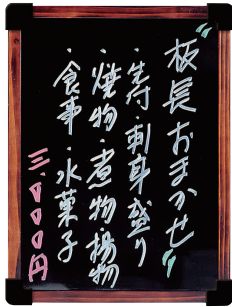 "板長おまかせ"
・先付・刺身盛り
・焼物・煮物・揚物
・食事・水菓子
三、000円